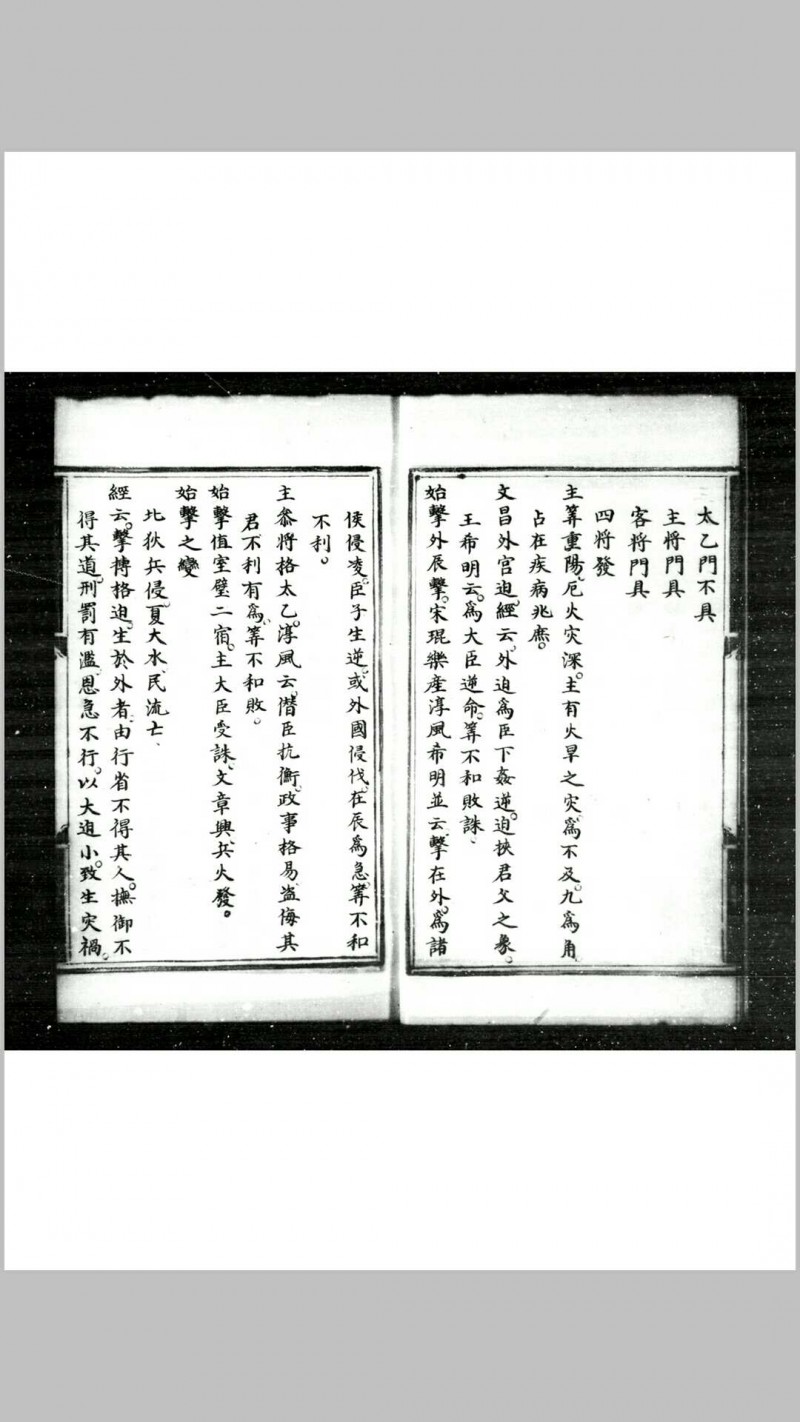 太乙門不具
主將門具
客將門具
四將發
主筭重陽厄火灾深。主有火旱之灾。為不及。九為角
占在疾病兆庶。
文昌外宮迫。經云。外迫為臣下姦逆。迫挾君父之象。
王希明云。為大臣逆命。筭不和敗誅、
始擊外辰擊。宋琨樂產淳風希明並云。擊在外。為諸
侯侵凌。臣子生逆。或外國侵伐。在辰為急。筭不和
不利。
主叅將格太乙。淳風云。僭臣抗衡。政事格易。盗侮其
君不利有為。筭不和敗。
始擊值室壁二宿。主大臣受誅。文章興。兵火發。
始擊之變
北狄兵侵。夏大水。民流亡、
經云。擊摶格迫。生於外者。由行省不得其人。撫御不
得其道。刑罰有濫。恩急不行。以大迫小。致生灾禍。